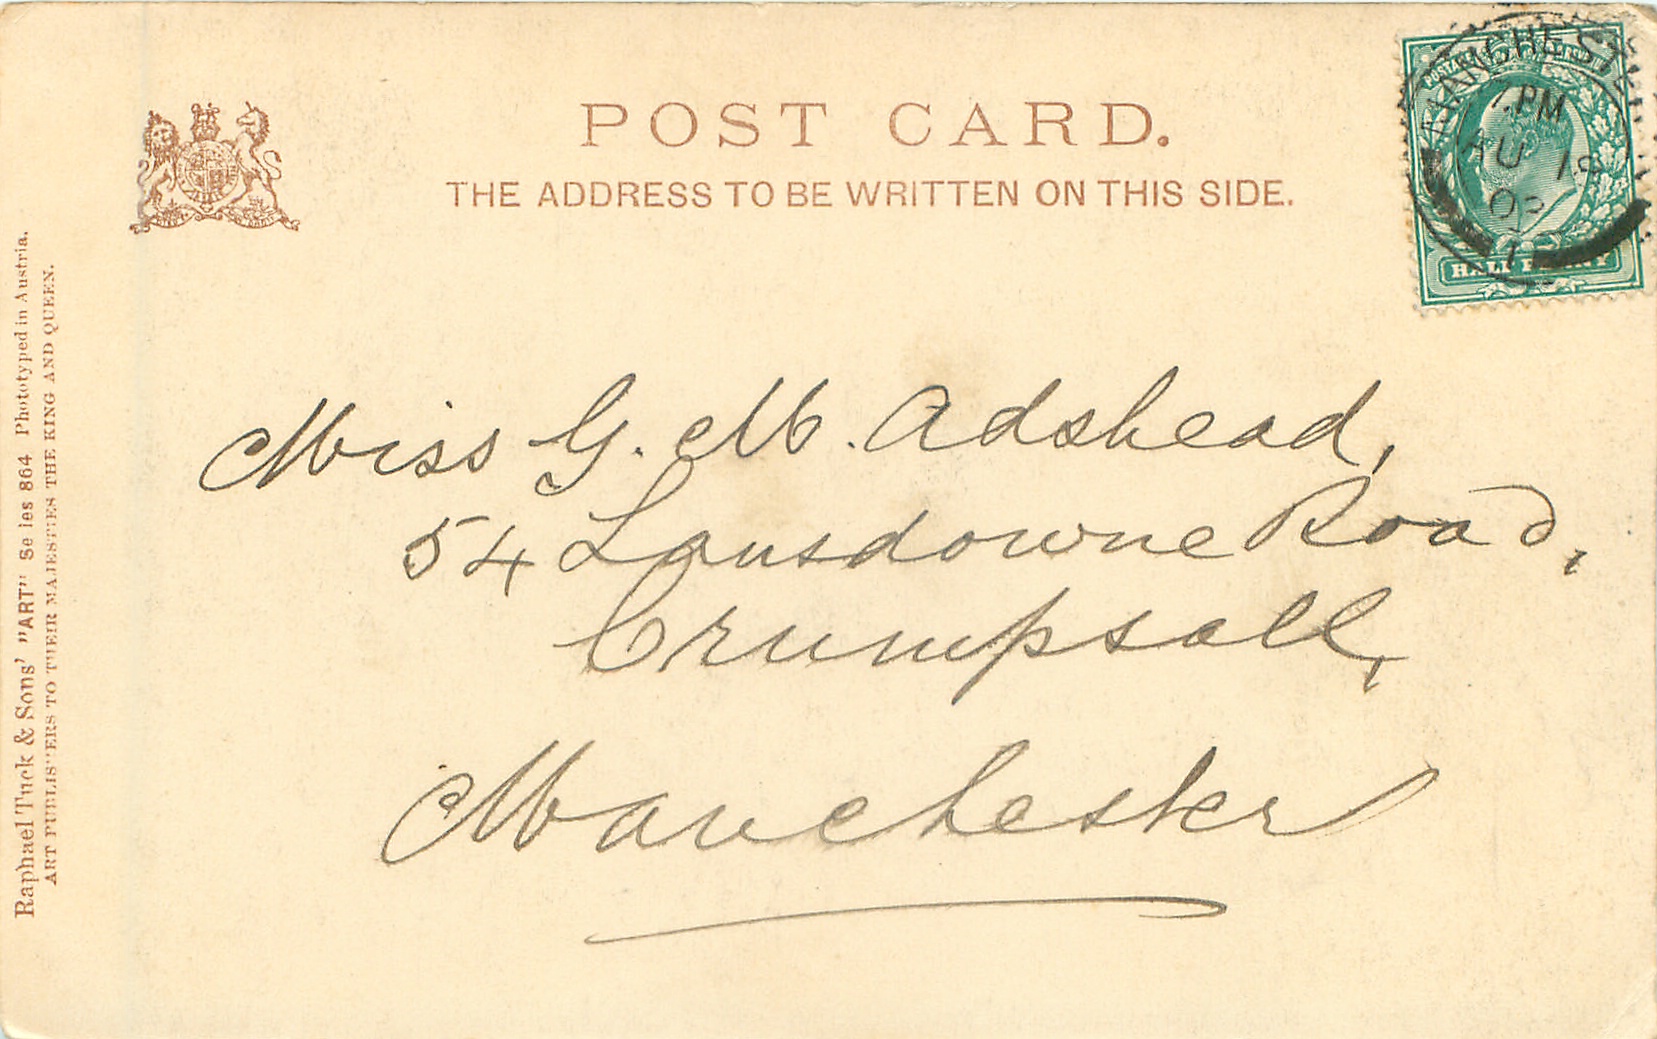 POST CARD.
THE ADDRESS TO BE WRITTEN ON THIS SIDE.
MANCHESTER
PM
AU 18
03
1
HALF PENNY
Miss G. M. Adshead,
54 Lansdowne Road,
Crumpsall,
Manchester
Raphael Tuck & Sons' "ART" Se ies 864 Phototyped in Austria.
ART PUBLISHERS TO THEIR MAJESTIES THE KING AND QUEEN.